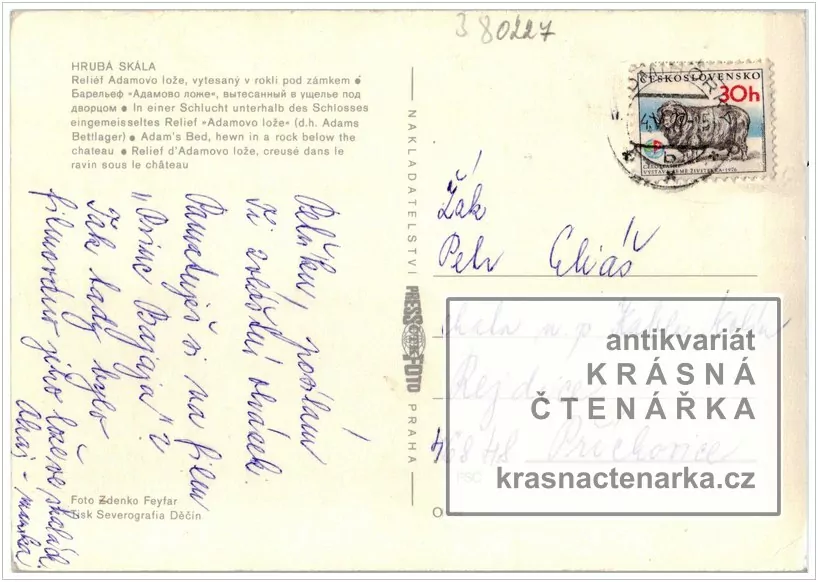 380227
HRUBÁ SKÁLA
Reliéf Adamovo lože, vytesaný v rokli pod zámkem ●
Барельеф "Адамово ложе", вытесанный в ущелье под
дворцом ● In einer Schlucht unterhalb des Schlosses
eingemeisseltes Relief "Adamovo lože" (d.h. Adams
Bettlager) ● Adam's Bed, hewn in a rock below the
chateau ● Relief d'Adamovo lože, creusé dans le
ravin sous le château
Péťáku, posílám
Ti zvláštní obrázek.
Pamatuješ si na film
"Princ Bajaja"?
Tak tady bylo
filmováno jeho lože ve skalách.
Ahoj - mamka
Foto Zdenko Feyfar
Tisk Severografia Děčín
NAKLADATELSTVÍ PRESSFOTO PRAHA
ČESKOSLOVENSKO
30h
Žák
Petr Eliáš
Rejdice
468 48 Příchovice
PSČ
antikvariát
KRÁSNÁ
ČTENÁŘKA
krasnactenarka.cz